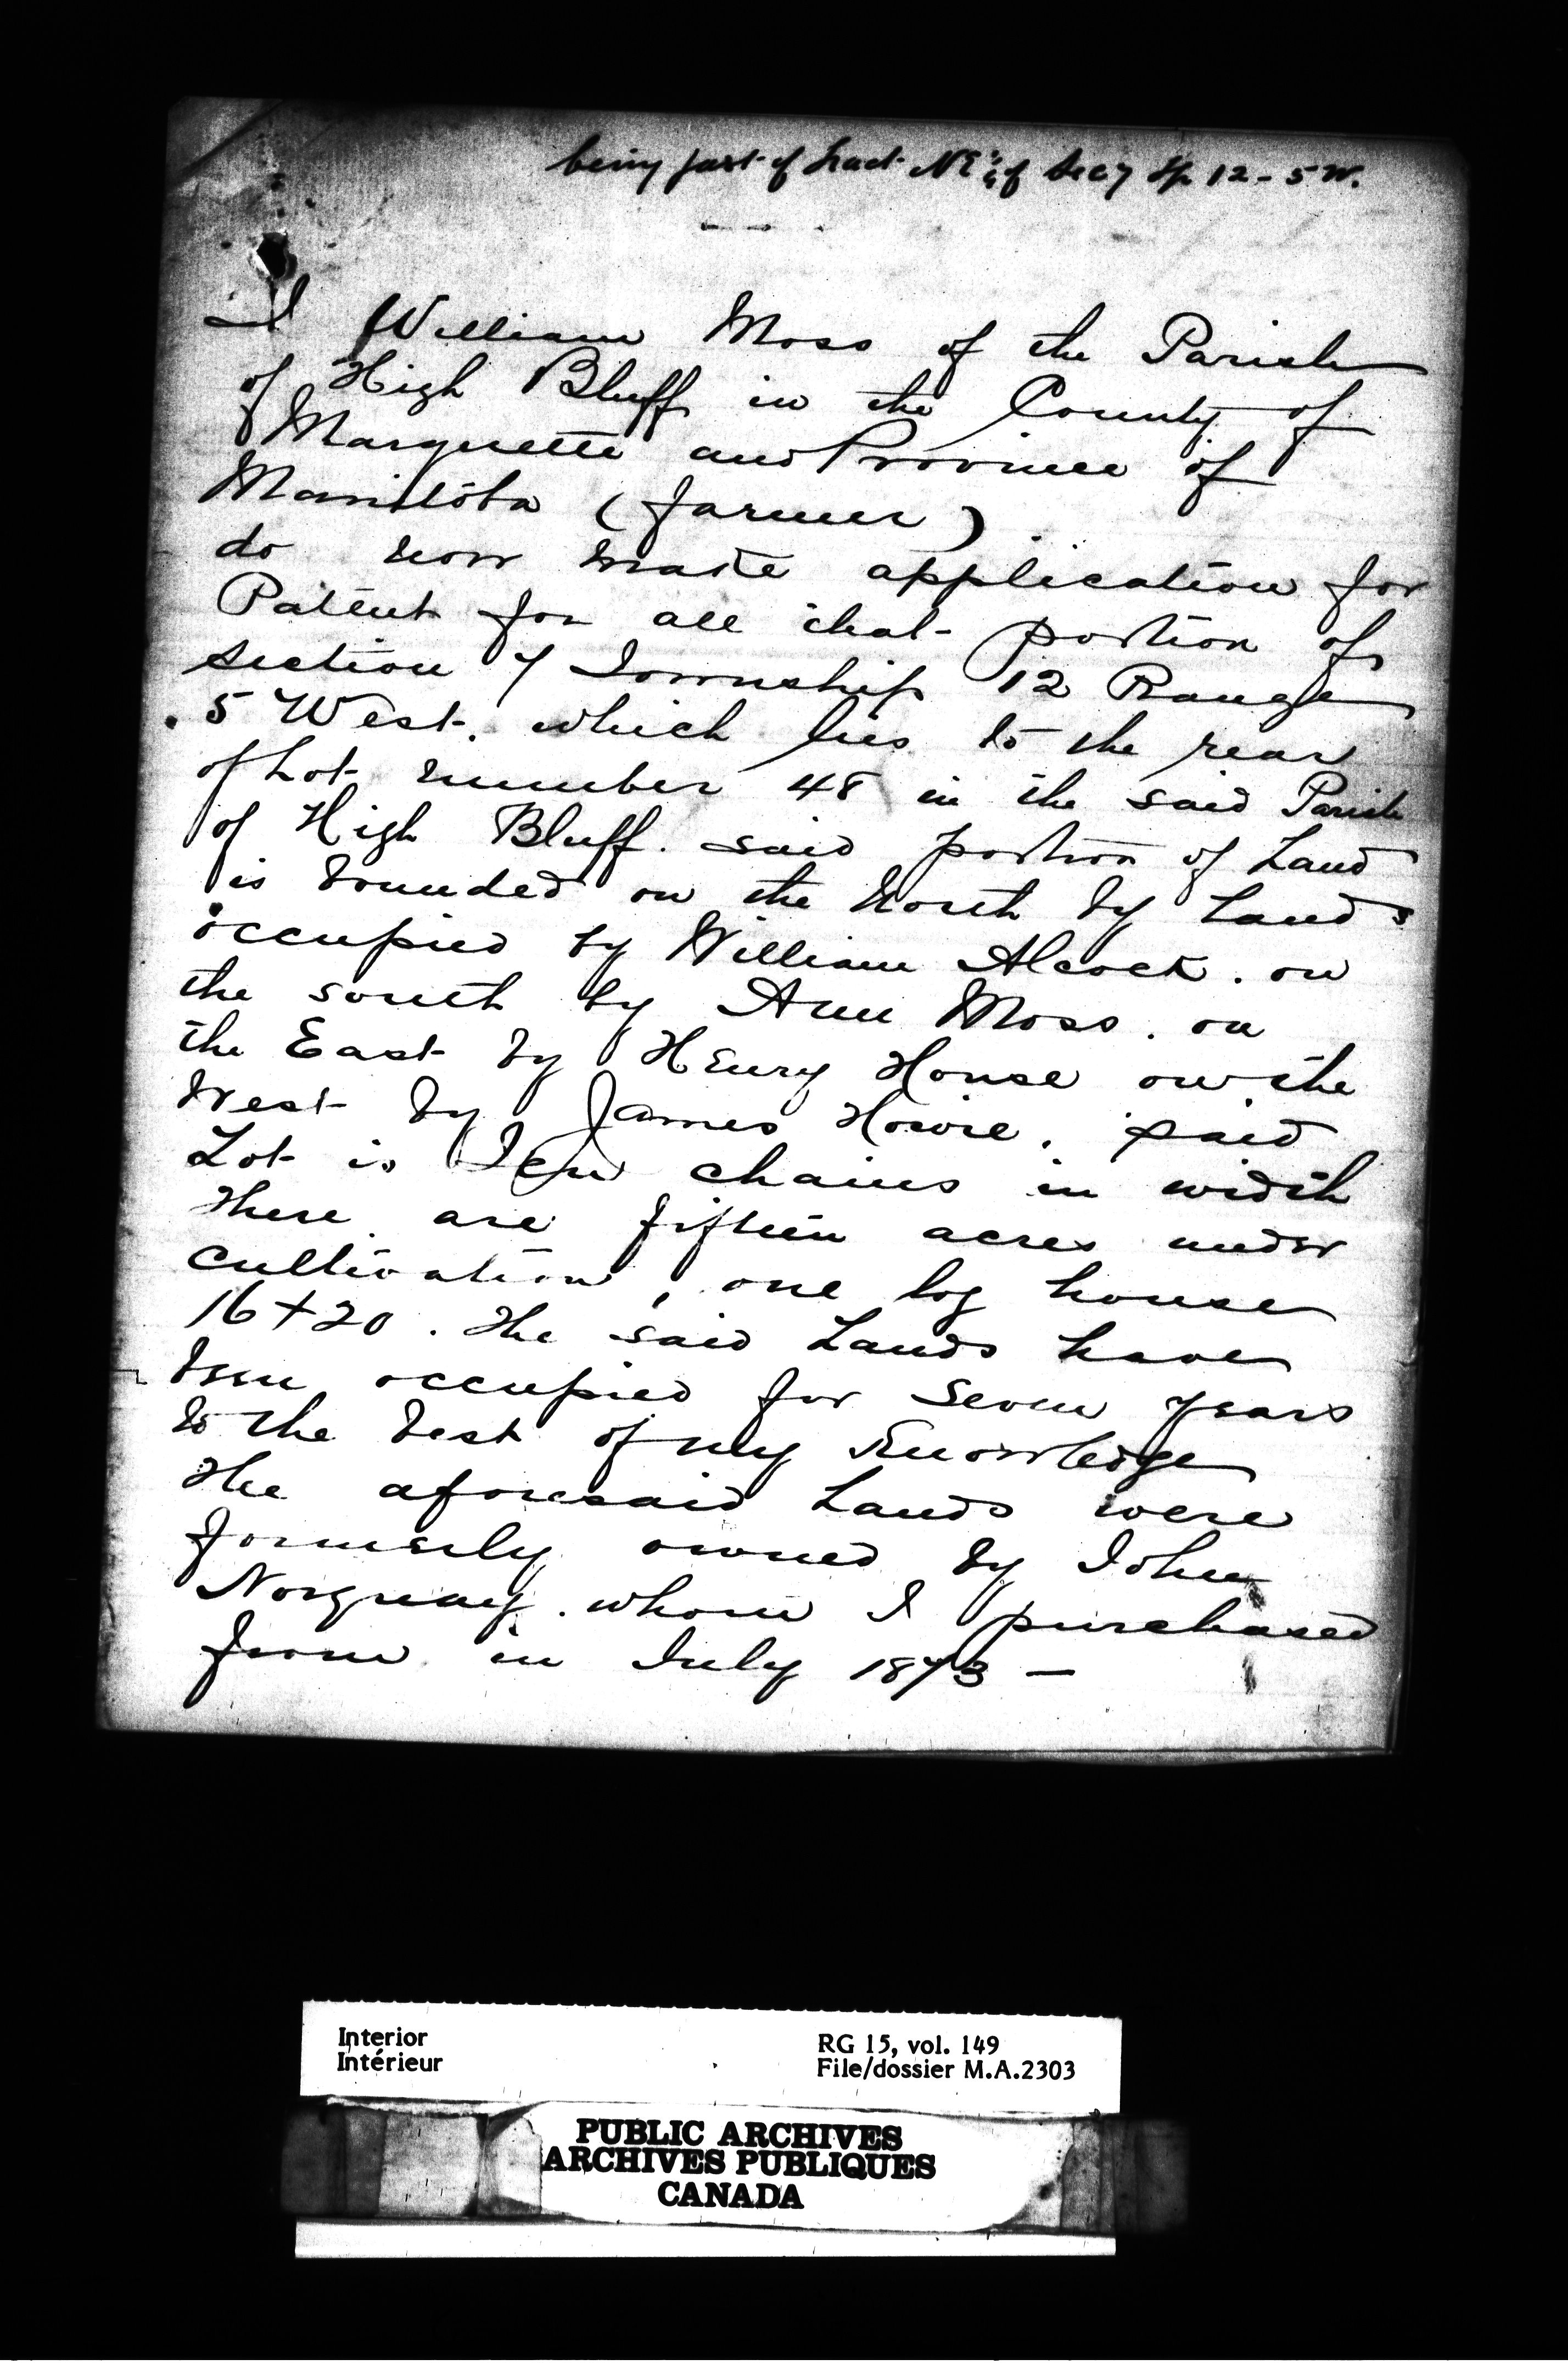 being part of fract NE 1/4 of Sec 7 Tp. 12 - 5 W.
I William Moss of the Parish
of High Bluff in the County of
Marquette and Province of
Manitoba (farmer)
do now make application for
Patent for all that portion of
section 7 Township 12 Range
5 West. which lies to the rear
of Lot number 48 in the said Parish
of High Bluff. said portion of Land
is bounded on the North by Lands
occupied by William Alcock. on
the south by Ann Moss. on
the East by Henry House on the
West by James Howie. said
Lot is Ten chains in width
There are fifteen acres under
cultivation, one log house
16 + 20. The said Lands have
been occupied for seven years
to the best of my Knowledge
The aforesaid Lands were
formerly owned by John
Norquay. whom I purchased
from in July 1873 -
Interior
Intérieur
RG 15, vol. 149
File/dossier M.A.2303
PUBLIC ARCHIVES
ARCHIVES PUBLIQUES
CANADA